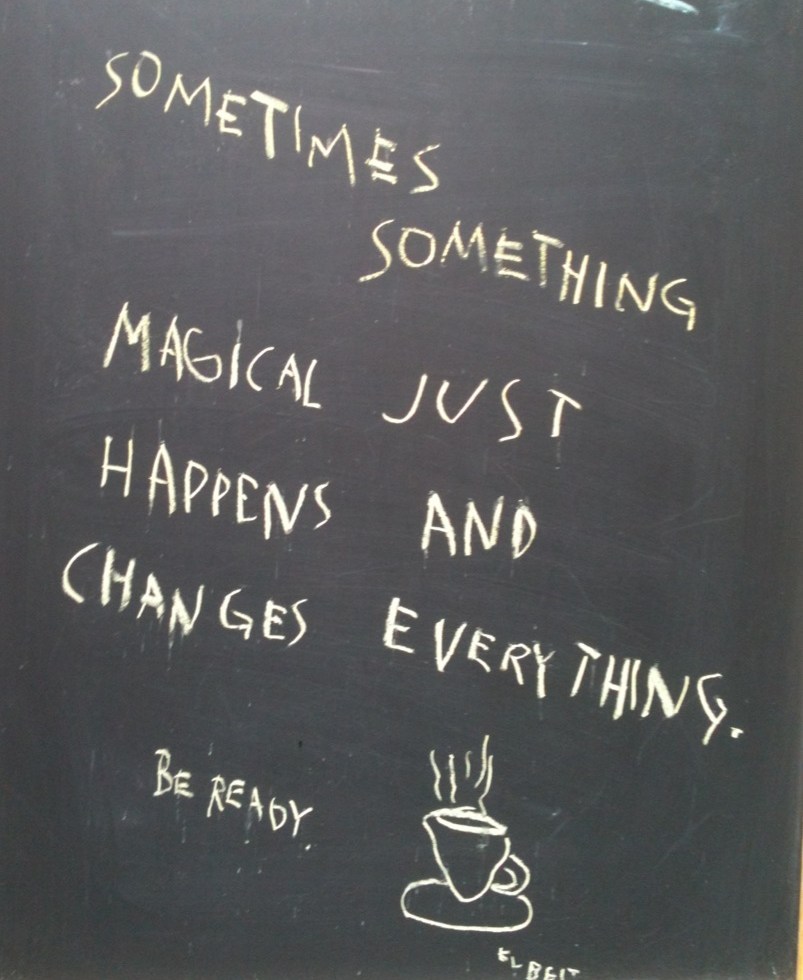 SOMETIMES
SOMETHING
MAGICAL JUST
HAPPENS AND
CHANGES EVERYTHING.
BE READY.
EL BEIT